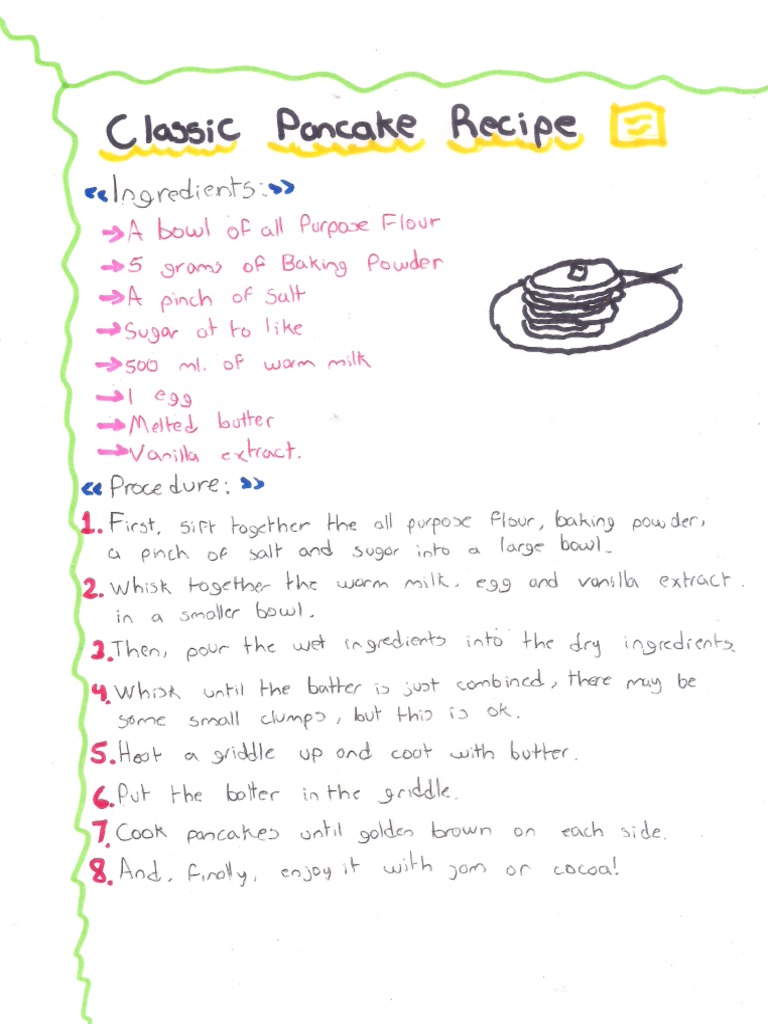 Classic Pancake Recipe
Ingredients:
A bowl of all Purpose Flour
5 grams of Baking Powder
A pinch of Salt
Sugar at to like
500 ml. of warm milk
1 egg
Melted butter
Vanilla extract.
Procedure:
1. First, sift together the all purpose flour, baking powder,
a pinch of salt and sugar into a large bowl.
2. Whisk together the warm milk, egg and vanilla extract.
in a smaller bowl.
3. Then, pour the wet ingredients into the dry ingredients.
4. Whisk until the batter is just combined, there may be
some small clumps, but this is ok.
5. Heat a griddle up and coat with butter.
6. Put the batter in the griddle.
7. Cook pancakes until golden brown on each side.
8. And, finally, enjoy it with jam or cocoa!